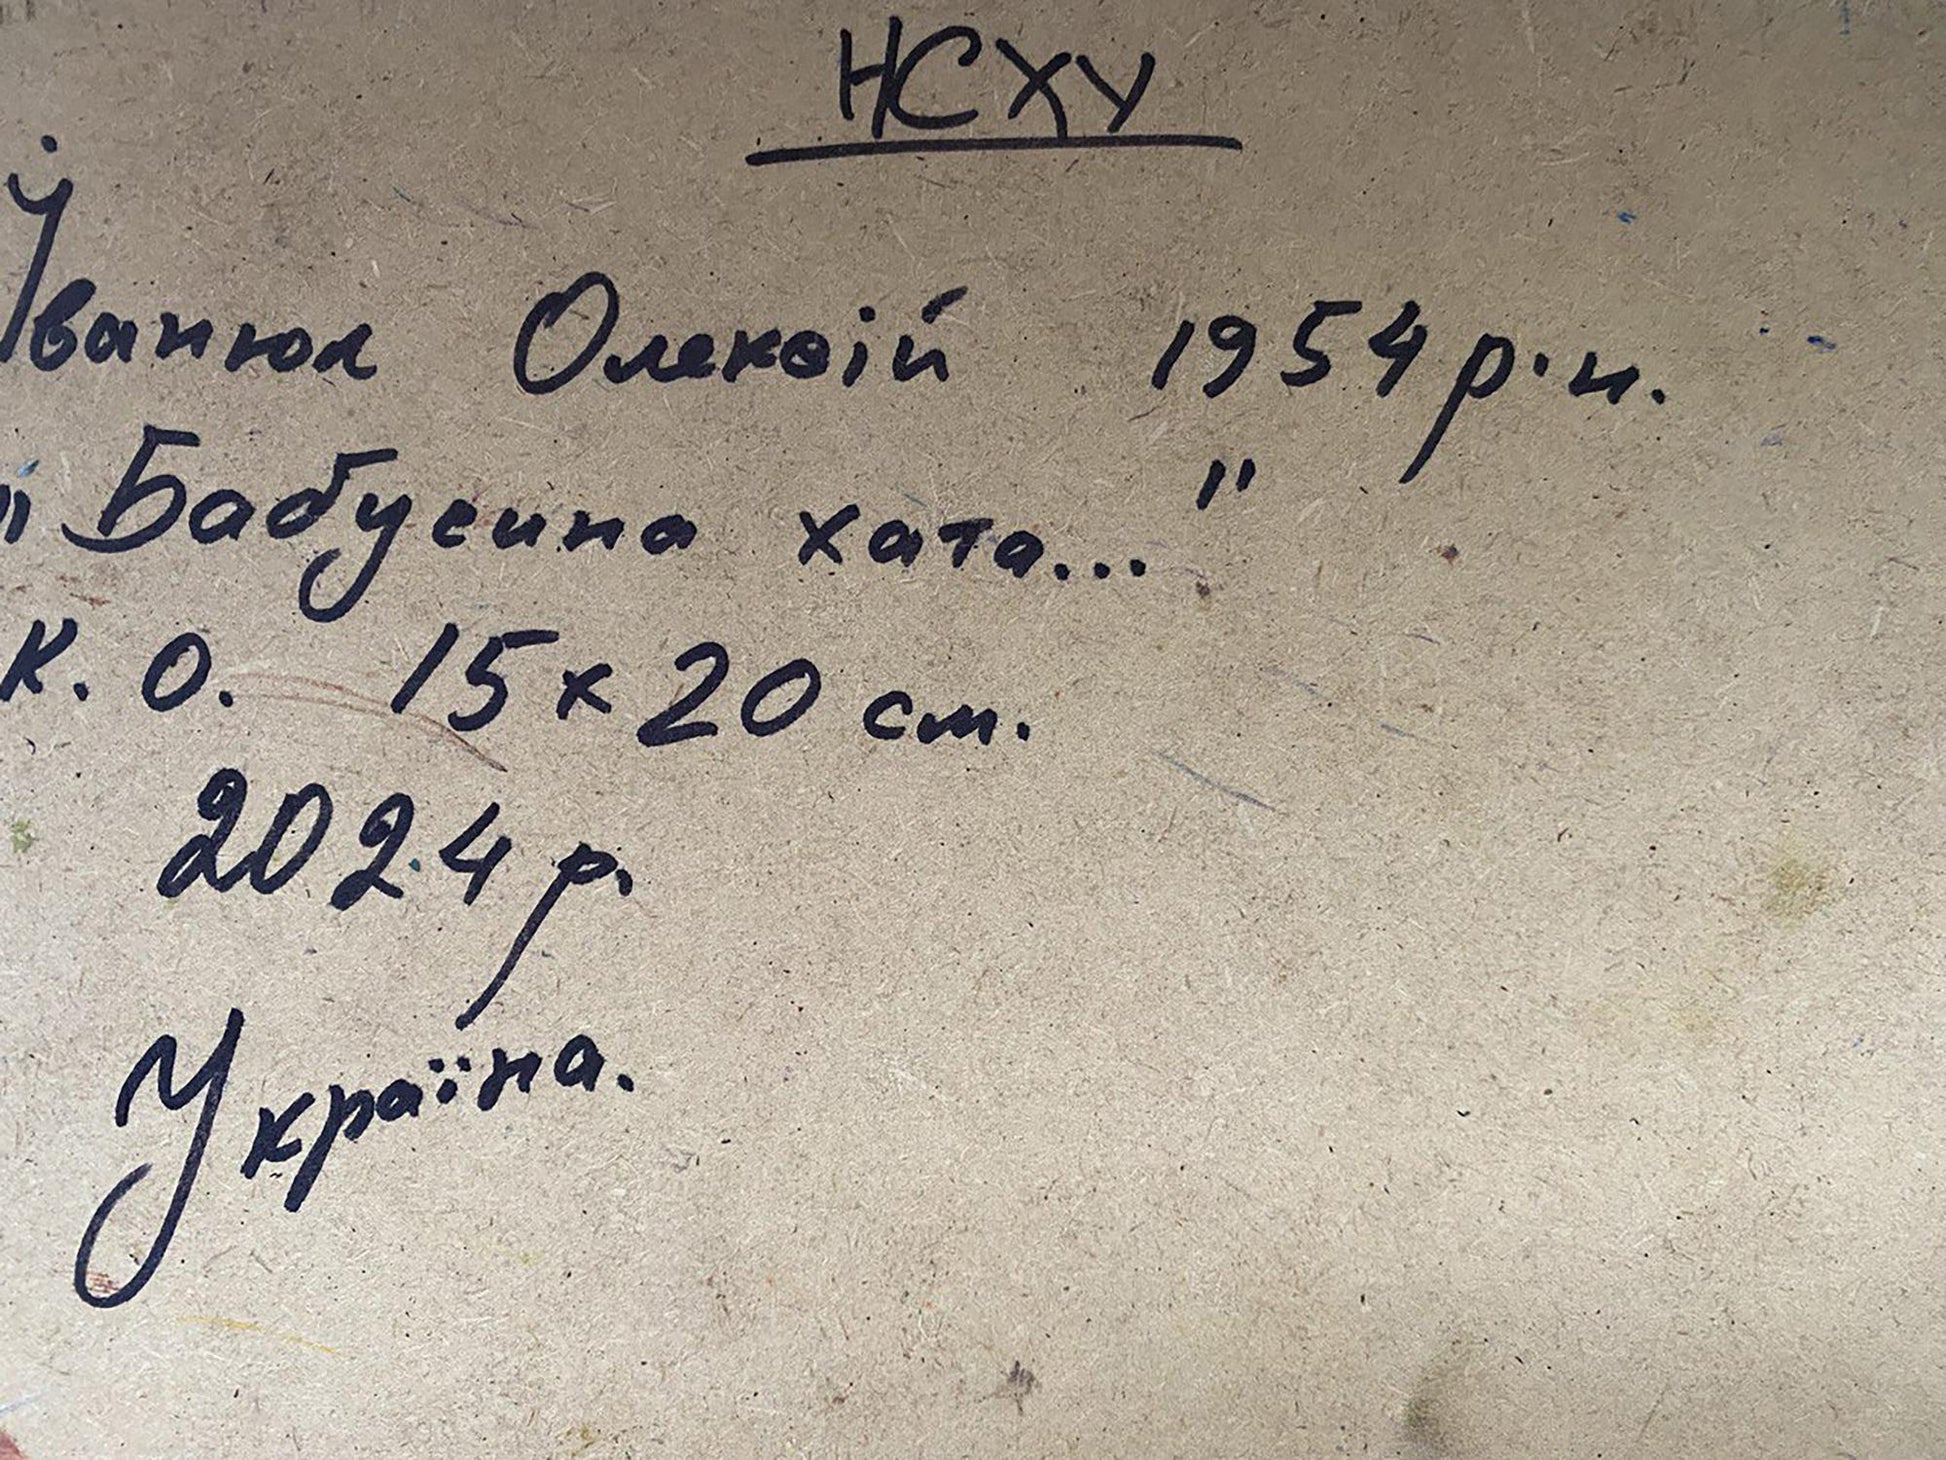 НСХУ
Іванюк Олексій 1954 р.н.
"Бабусина хата..."
К. О. 15х20 см.
2024 р.
Україна.